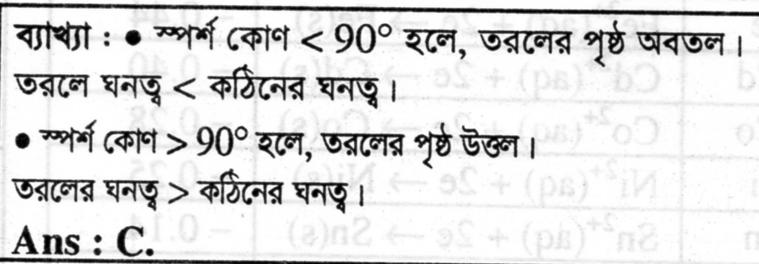 ব্যাখ্যা : ● স্পর্শ কোণ < 90° হলে, তরলের পৃষ্ঠ অবতল।
তরলে ঘনত্ব < কঠিনের ঘনত্ব।
● স্পর্শ কোণ > 90° হলে, তরলের পৃষ্ঠ উত্তল।
তরলের ঘনত্ব > কঠিনের ঘনত্ব।
Ans : C.